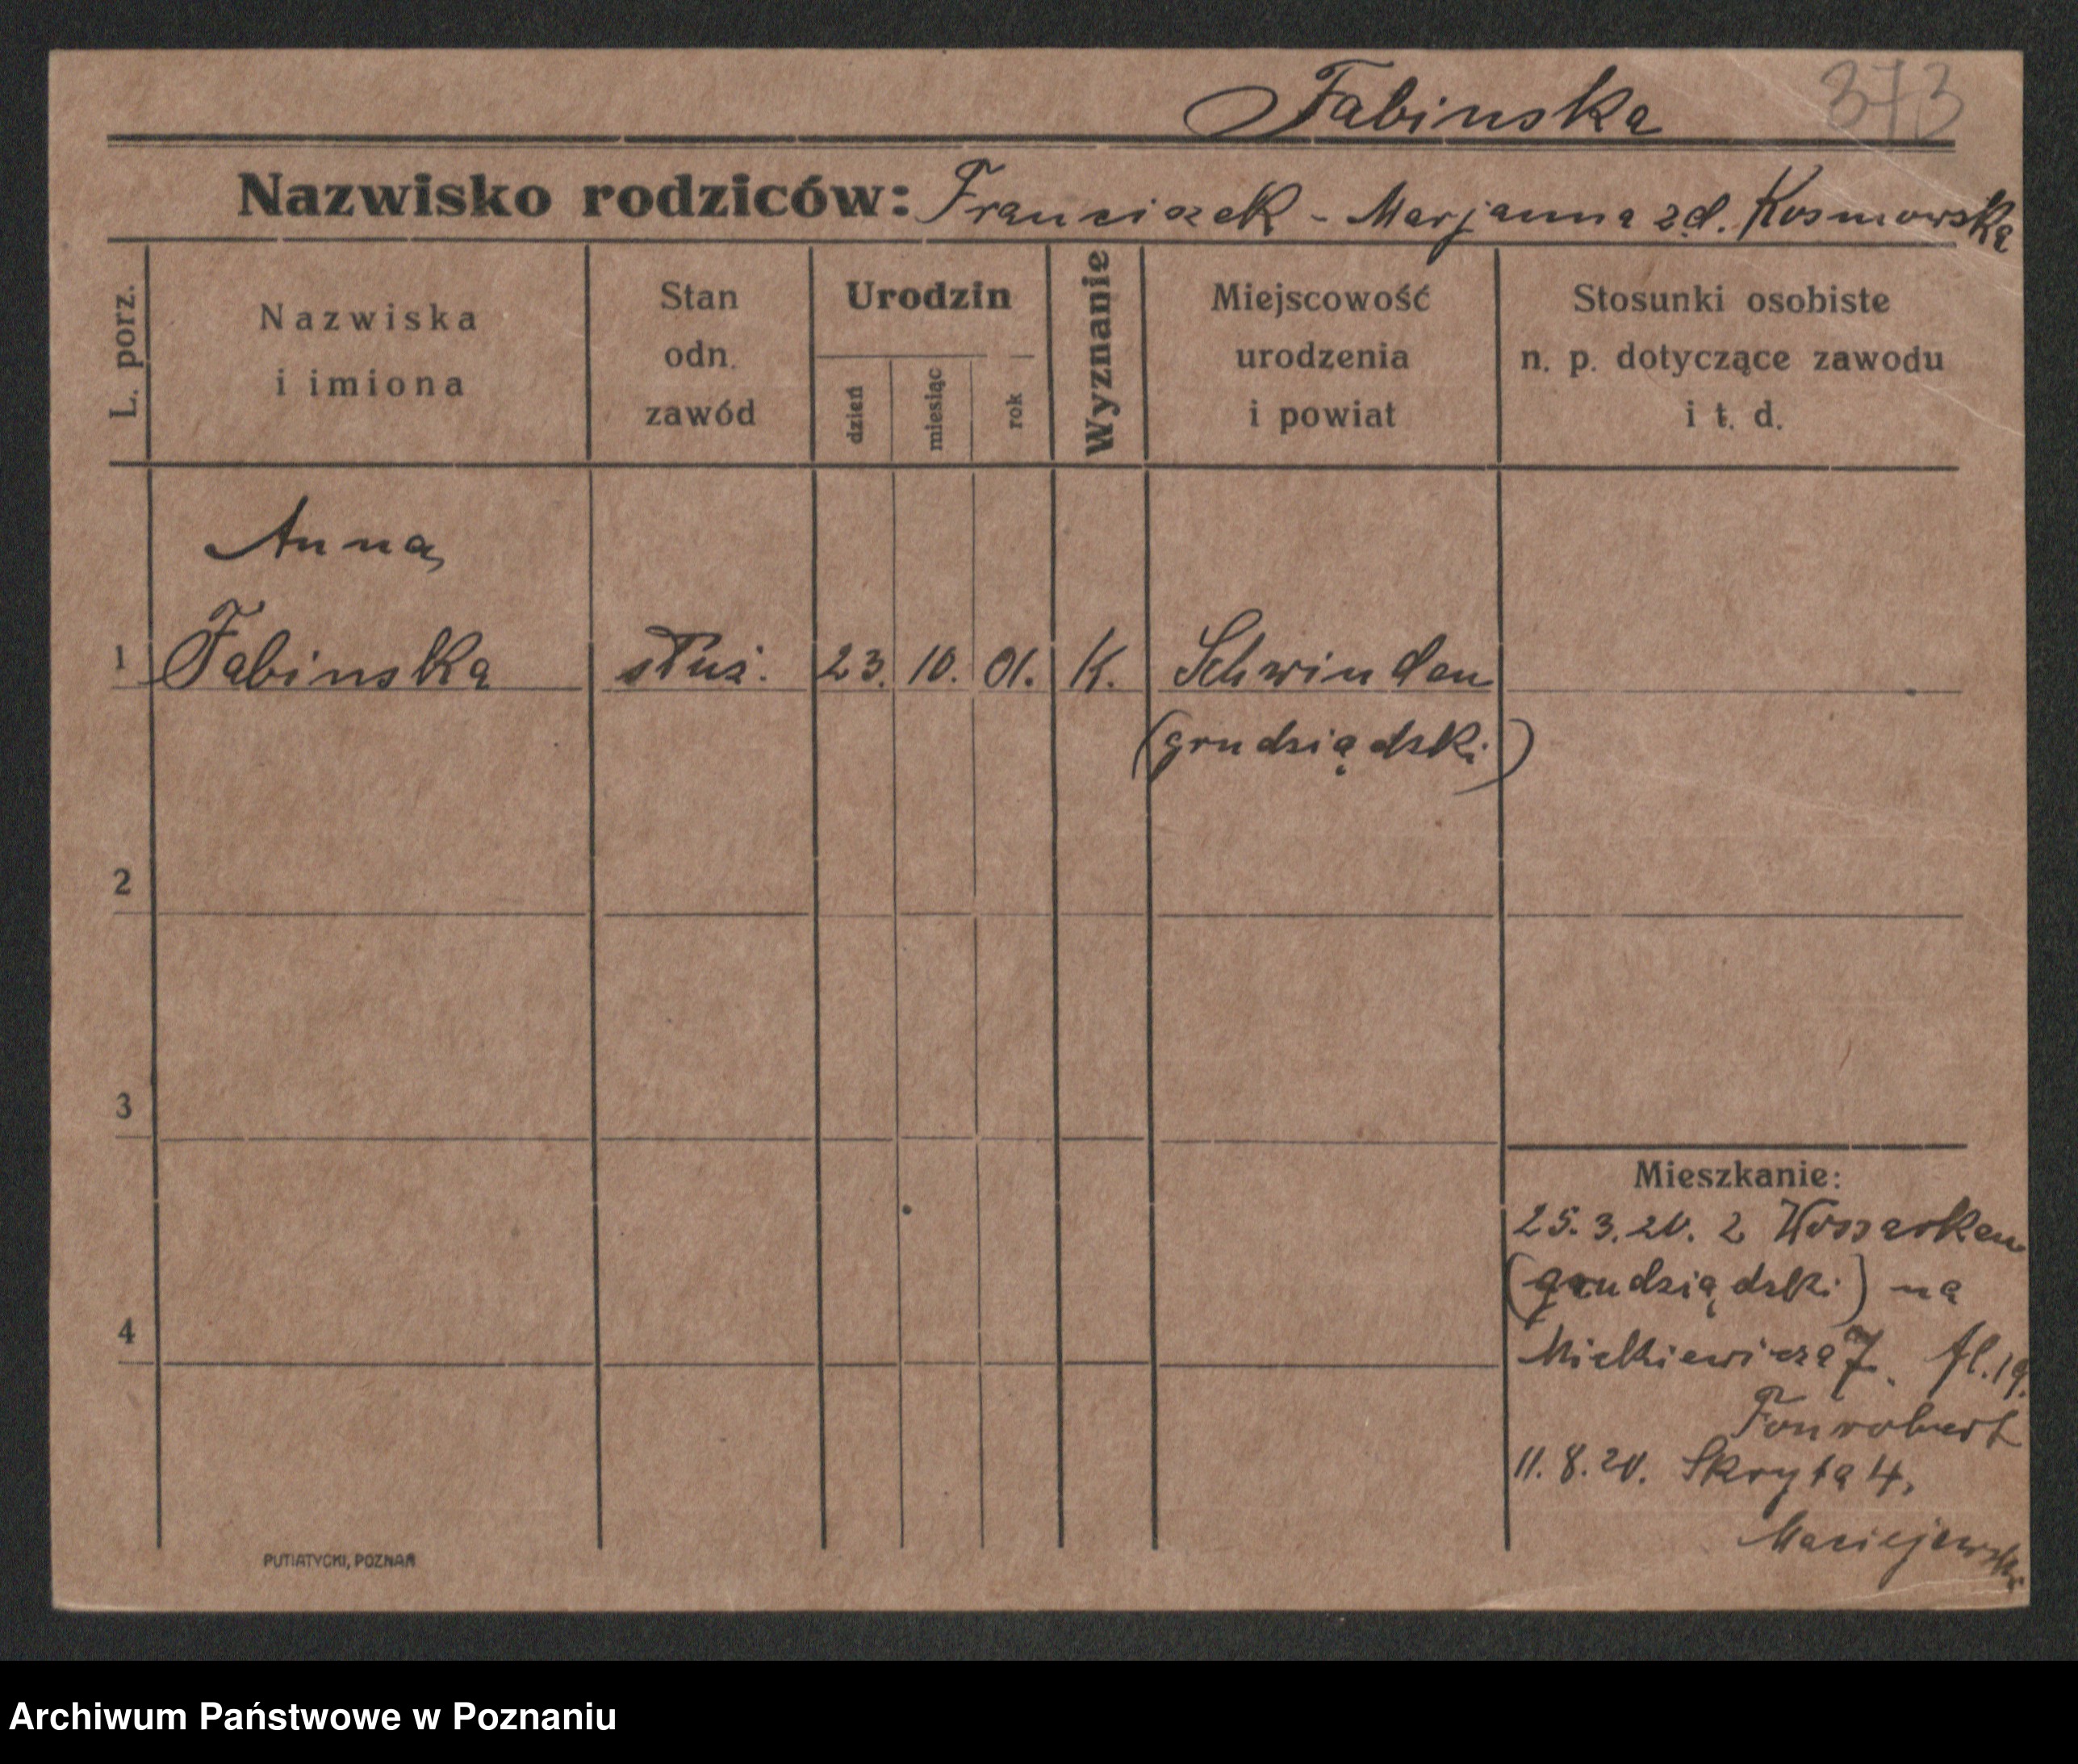 Fabinska 373
Nazwisko rodziców: Franciszek - Marjanna zd. Kosmowska
L. porz.
Nazwiska
i imiona
Stan
odn.
zawód
Urodzin
dzień
miesiąc
rok
Wyznanie
Miejscowość
urodzenia
i powiat
Stosunki osobiste
n. p. dotyczące zawodu
i t. d.
Anna
1 Fabinska służ. 23. 10. 01. K. Schwinden
(grudziądzki)
2
3
4
Mieszkanie:
25.3.20. z Wossarken
(grudziądzki) na
Mickiewicza 7. fl. 19.
Fonrobert
11.8.20. Skryta 4.
Maciejewski
PUTIATYCKI, POZNAŃ
Archiwum Państwowe w Poznaniu